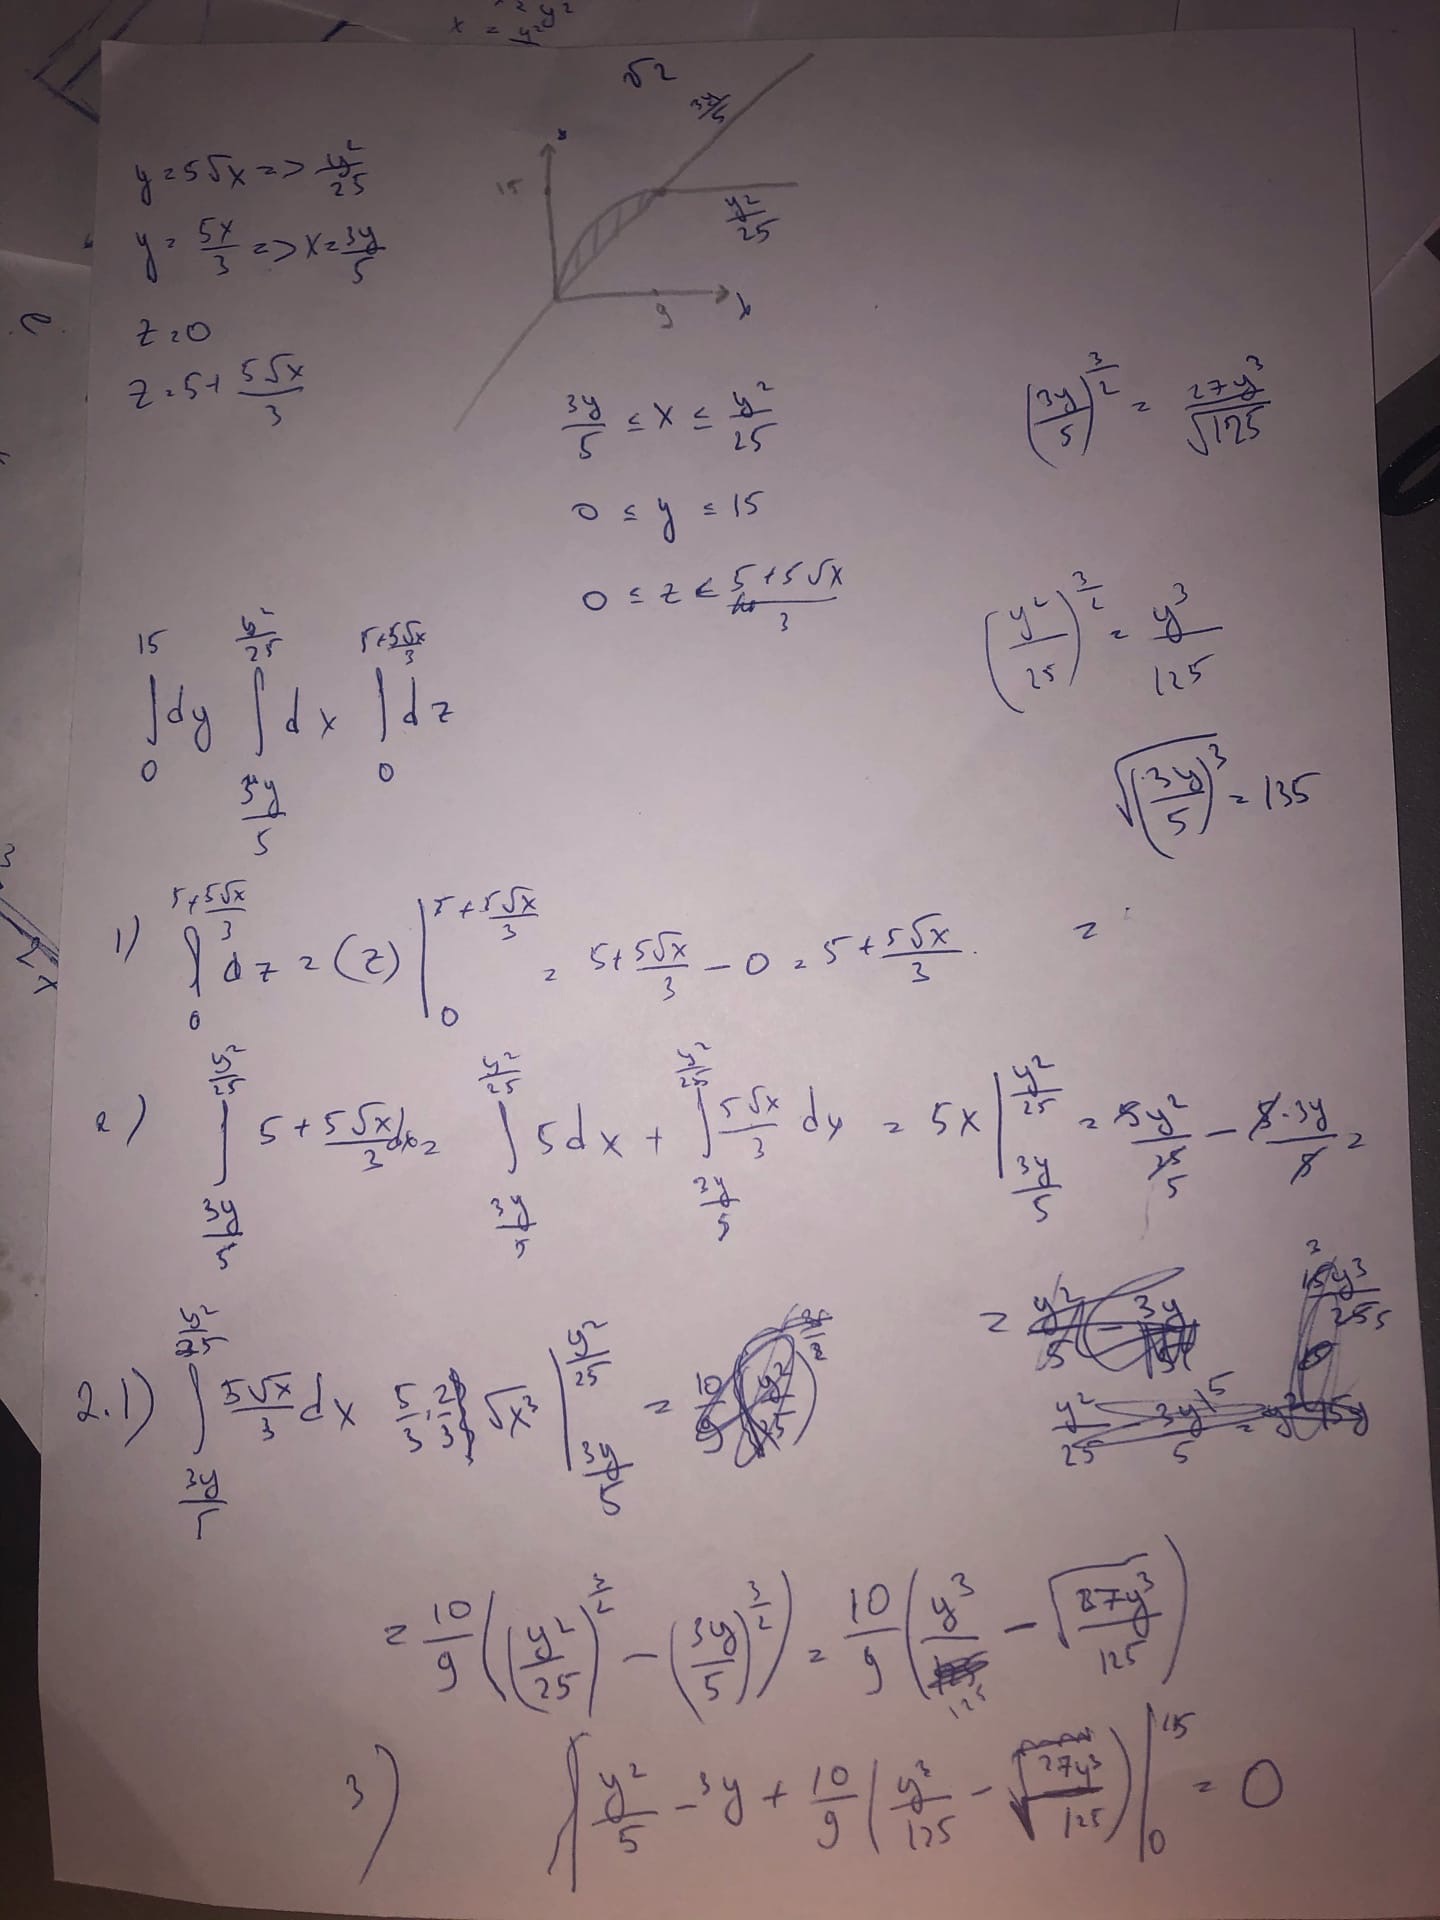 x = y²
√2
3y/5
15
y²/25
9
x
y = 5√x => y²/25
y = 5x/3 => x = 3y/5
z = 0
z = 5 + 5√x/3
3y/5 ≤ x ≤ y²/25
0 ≤ y ≤ 15
0 ≤ z ≤ 5+5√x/3
(3y/5)^(3/2) = 27y³/√125
(y²/25)^(3/2) = y³/125
√(3y/5)³ = 135
∫₀^15 dy ∫_(3y/5)^(y²/25) dx ∫₀^(5+5√x/3) dz
1) ∫₀^(5+5√x/3) dz = (z) |₀^(5+5√x/3) = 5+5√x/3 - 0 = 5+5√x/3 =
2) ∫_(3y/5)^(y²/25) 5+5√x/3 dx = ∫_(3y/5)^(y²/25) 5dx + ∫_(3y/5)^(y²/25) 5√x/3 dx = 5x |_(3y/5)^(y²/25) = 5y²/25 5 - 5·3y/5 =
= y²/5 - 3y
2.1) ∫_(3y/5)^(y²/25) 5√x/3 dx 5/3 · 2/3 √x³ |_(3y/5)^(y²/25) =
= 10/9 ((y²/25)^(3/2) - (3y/5)^(3/2)) = 10/9 (y³/125 - √(27y³/125))
3) ∫ y²/5 - 3y + 10/9 (y³/125 - √(27y³/125)) |₀^15 = 0